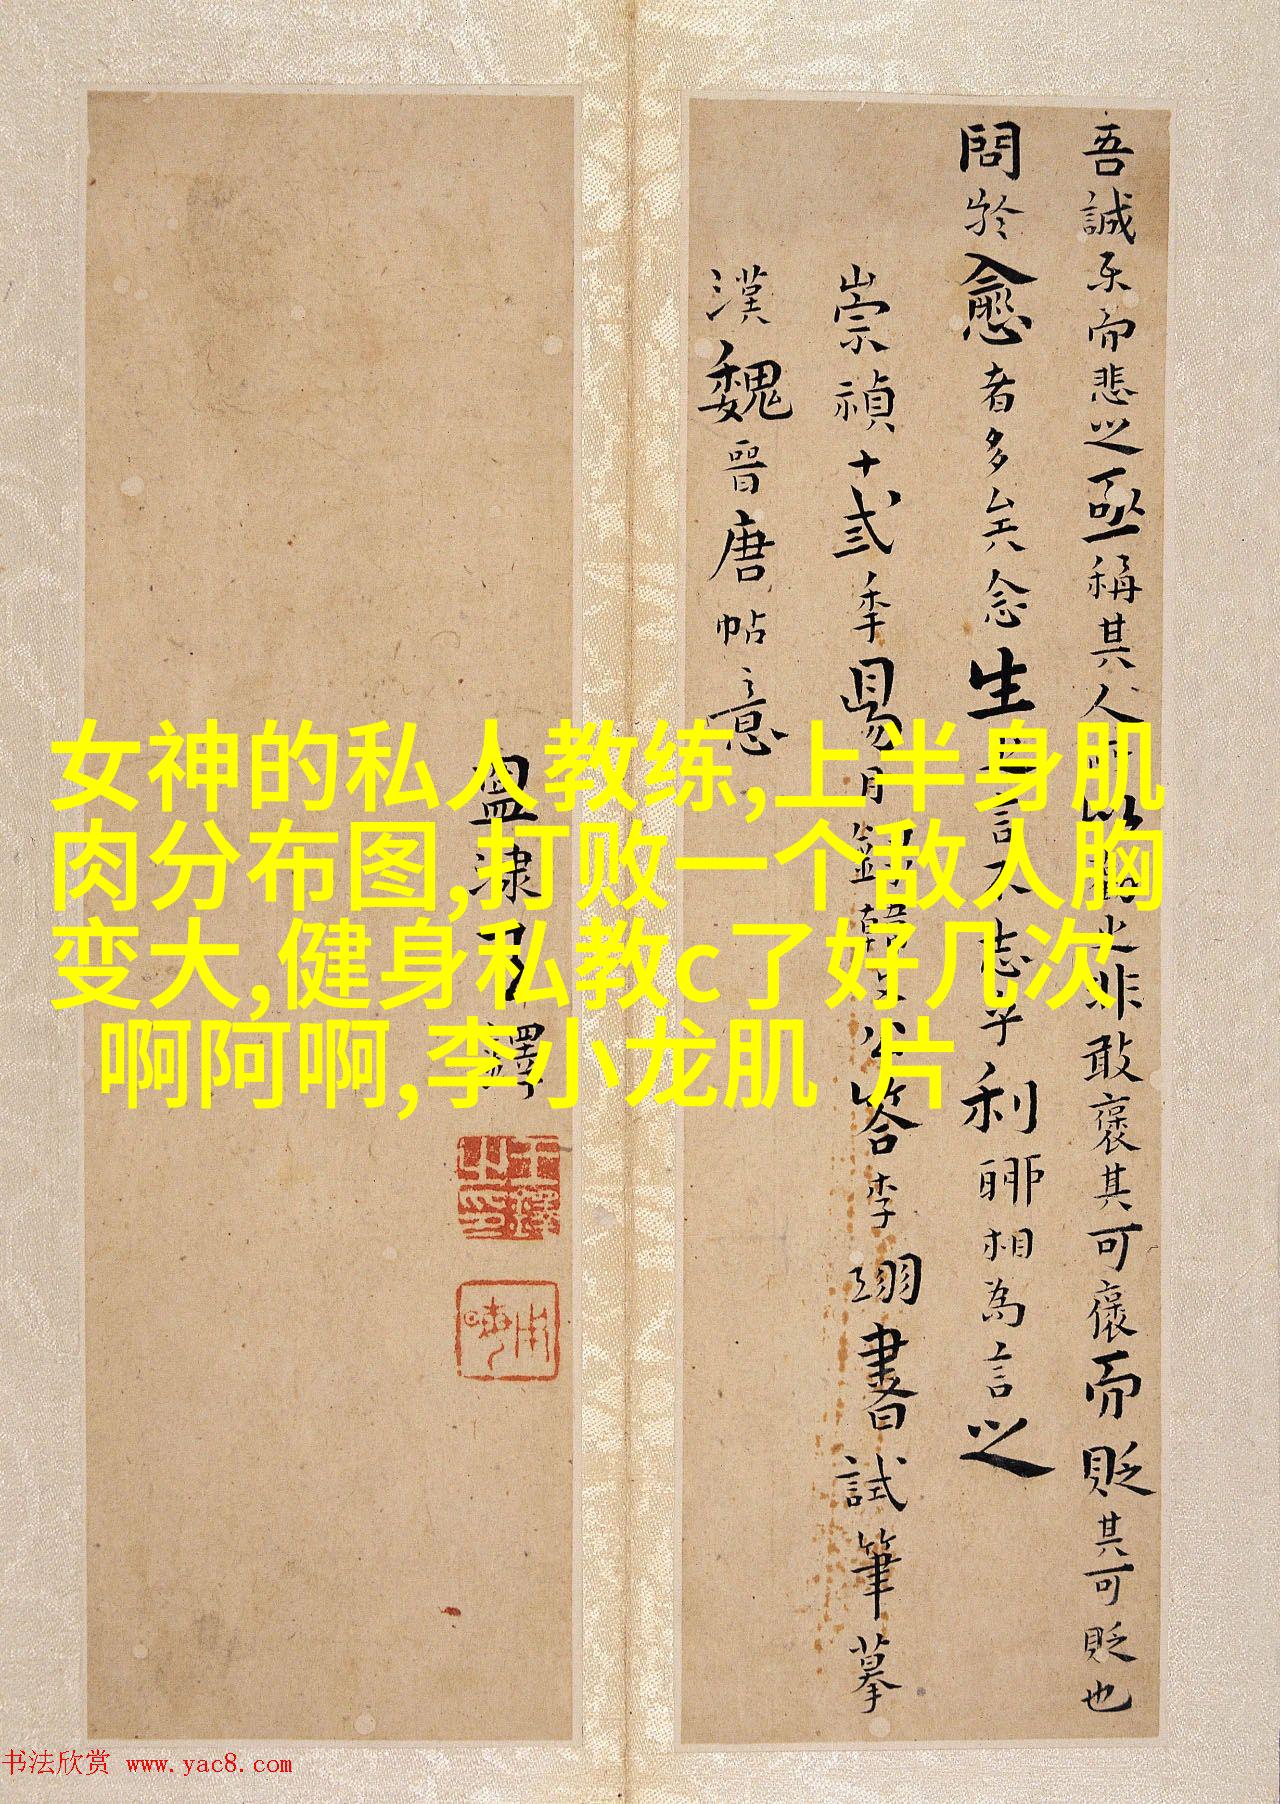 吾誠樂而悲之亟稱其人
敢褒其可褒而貶其可貶也
問於愈者多矣念生之言不志乎利聊相為言之
崇禎十弍季
月
韓文公答李翊書試筆摹
漢魏晉唐帖意
王鐸
女神的私人教练,上半身肌
肉分布图,打败一个敌人胸
变大,健身私教c了好几次
啊阿啊,李小龙肌 片
书法欣赏 www.yac8.com